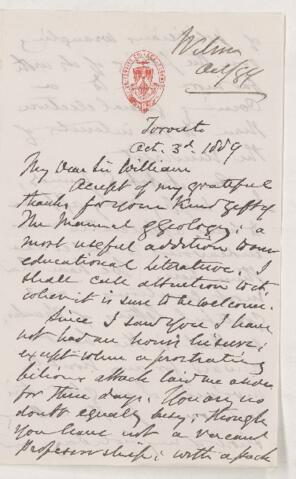 Wilson
Oct/89
Toronto
Oct. 3d 1889
My Dear Sir William
Accept of my grateful
thanks for your kind gift of
The Manual of Geology: a
most useful addition to our
educational literature. I
shall call attention to it
where it is sure to be welcome.
Since I saw you I have
not had an hour's leisure;
except when a prostrating
bilious attack laid me aside
for three days. You are no
doubt equally busy; though
you have not a vacant
Professorship; with a pack